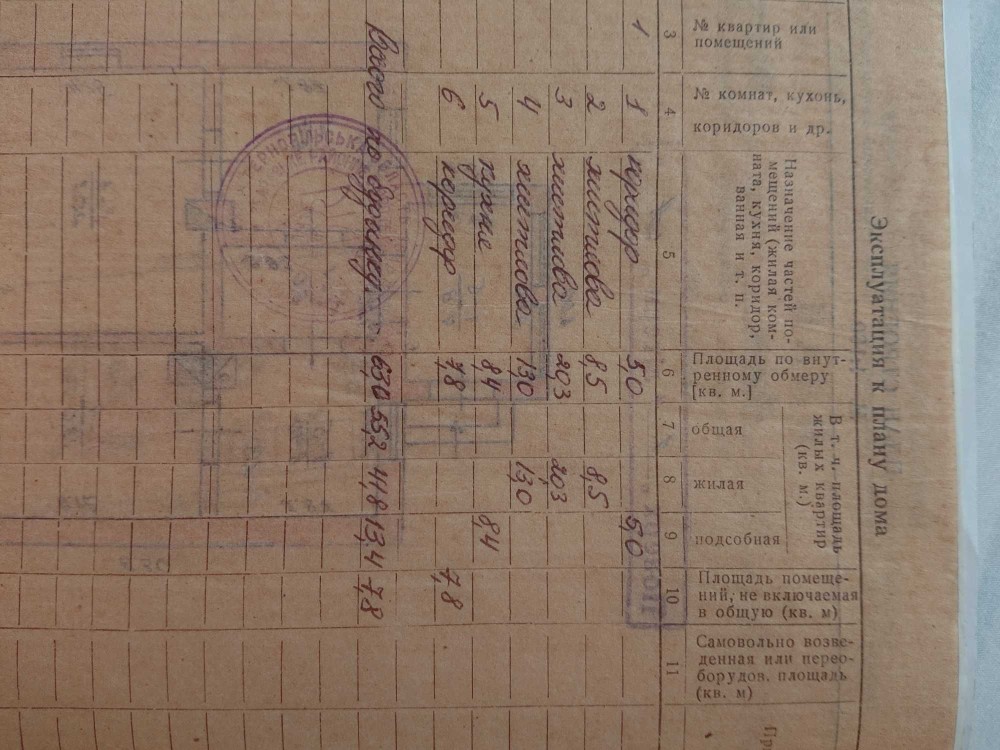 Эксплуатация к плану дома
№ квартир или помещений
№ комнат, кухонь, коридоров и др.
Назначение частей по-
мещений (жилая ком-
ната, кухня, коридор,
ванная и т. п.
Площадь по внут-
ренному обмеру
[кв. м.]
В т. ч. площадь
жилых квартир
(кв. м.)
общая
жилая
подсобная
Площадь помеще-
ний, не включаемая
в общую (кв. м)
Самовольно возве-
денная или перео-
борудов. площадь
(кв. м)
3 4 5 6 7 8 9 10 11
1 1 коридор 5,0 5,0
2 житлова 8,5 8,5
3 житлова 20,3 20,3
4 житлова 13,0 13,0
5 кухня 8,4 8,4
6 коридор 7,8 7,8
Всього по будинку - 63,0 55,2 41,8 13,4 7,8